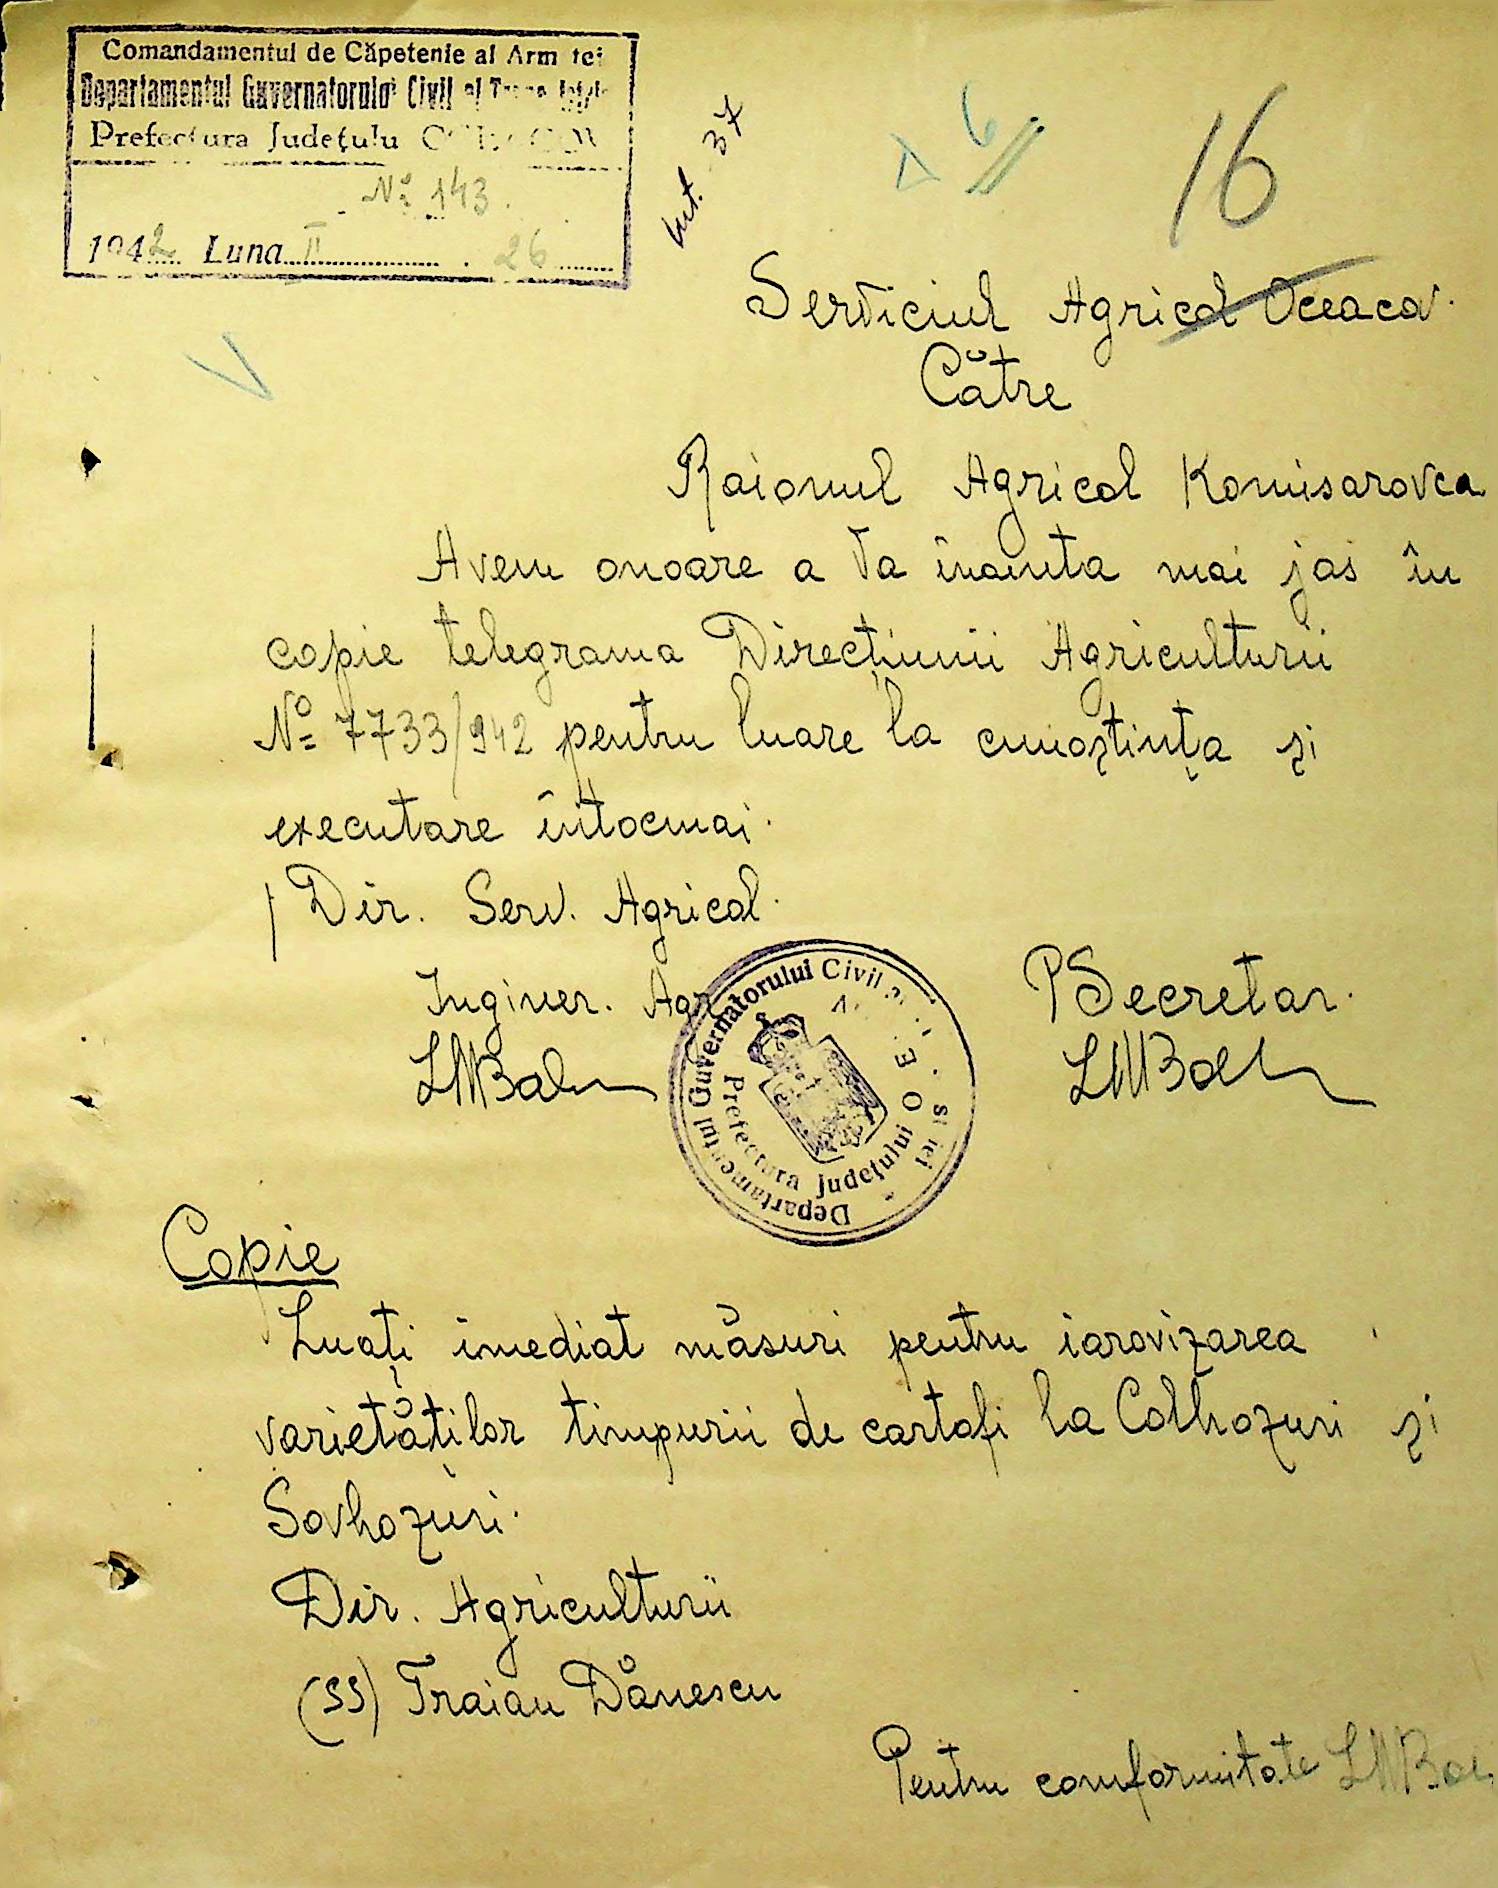 Comandamentul de Căpetenie al Arm tei
Departamentul Guvernatorului Civil al
Prefectura Județulu
No 143.
1942 Luna II 26
Int. 37
16
Serviciul Agricol Oceacov.
Către
Raionul Agricol Komisarovca
Avem onoare a Va înainta mai jos în
copie telegrama Direcțiunii Agriculturii
No 7733/942 pentru luare la cunoștința și
executare întocmai.
/ Dir. Serv. Agricol.
Inginer. Agr
P Secretar.
Departamentul Guvernatorului Civil
Prefectura Județului O
Copie
Luați imediat măsuri pentru iarovizarea
varietăților timpurii de cartofi la Colhozuri și
Sovhozuri.
Dir. Agriculturii
(ss) Traian Dănescu
Pentru comformitate